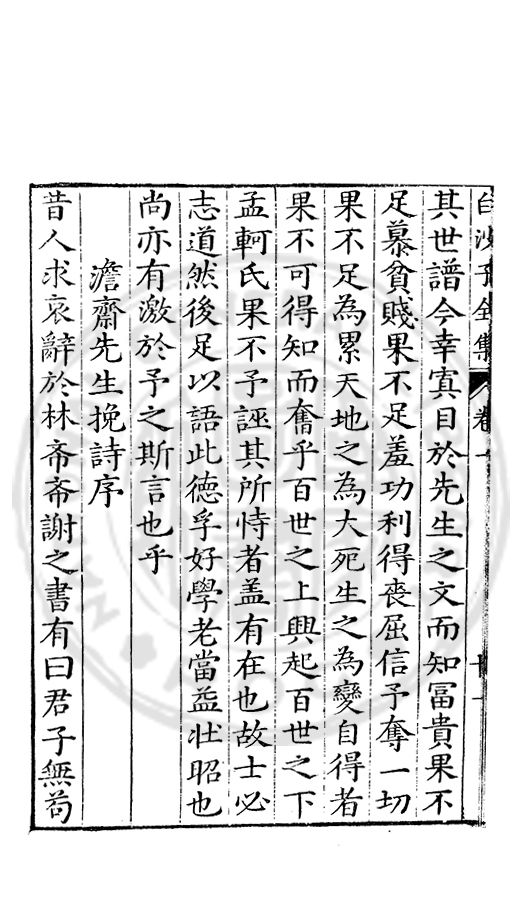 白沙子全集 卷一
其世譜今幸寘目於先生之文而知冨貴果不
足慕貧賤果不足羞功利得喪屈信予奪一切
果不足為累天地之為大死生之為變自得者
果不可得知而奮乎百世之上興起百世之下
孟軻氏果不予誣其所恃者盖有在也故士必
志道然後足以語此德孚好學老當益壯昭也
尚亦有激於予之斯言也乎
澹齋先生挽詩序
昔人求哀辭於林希希謝之書有曰君子無茍